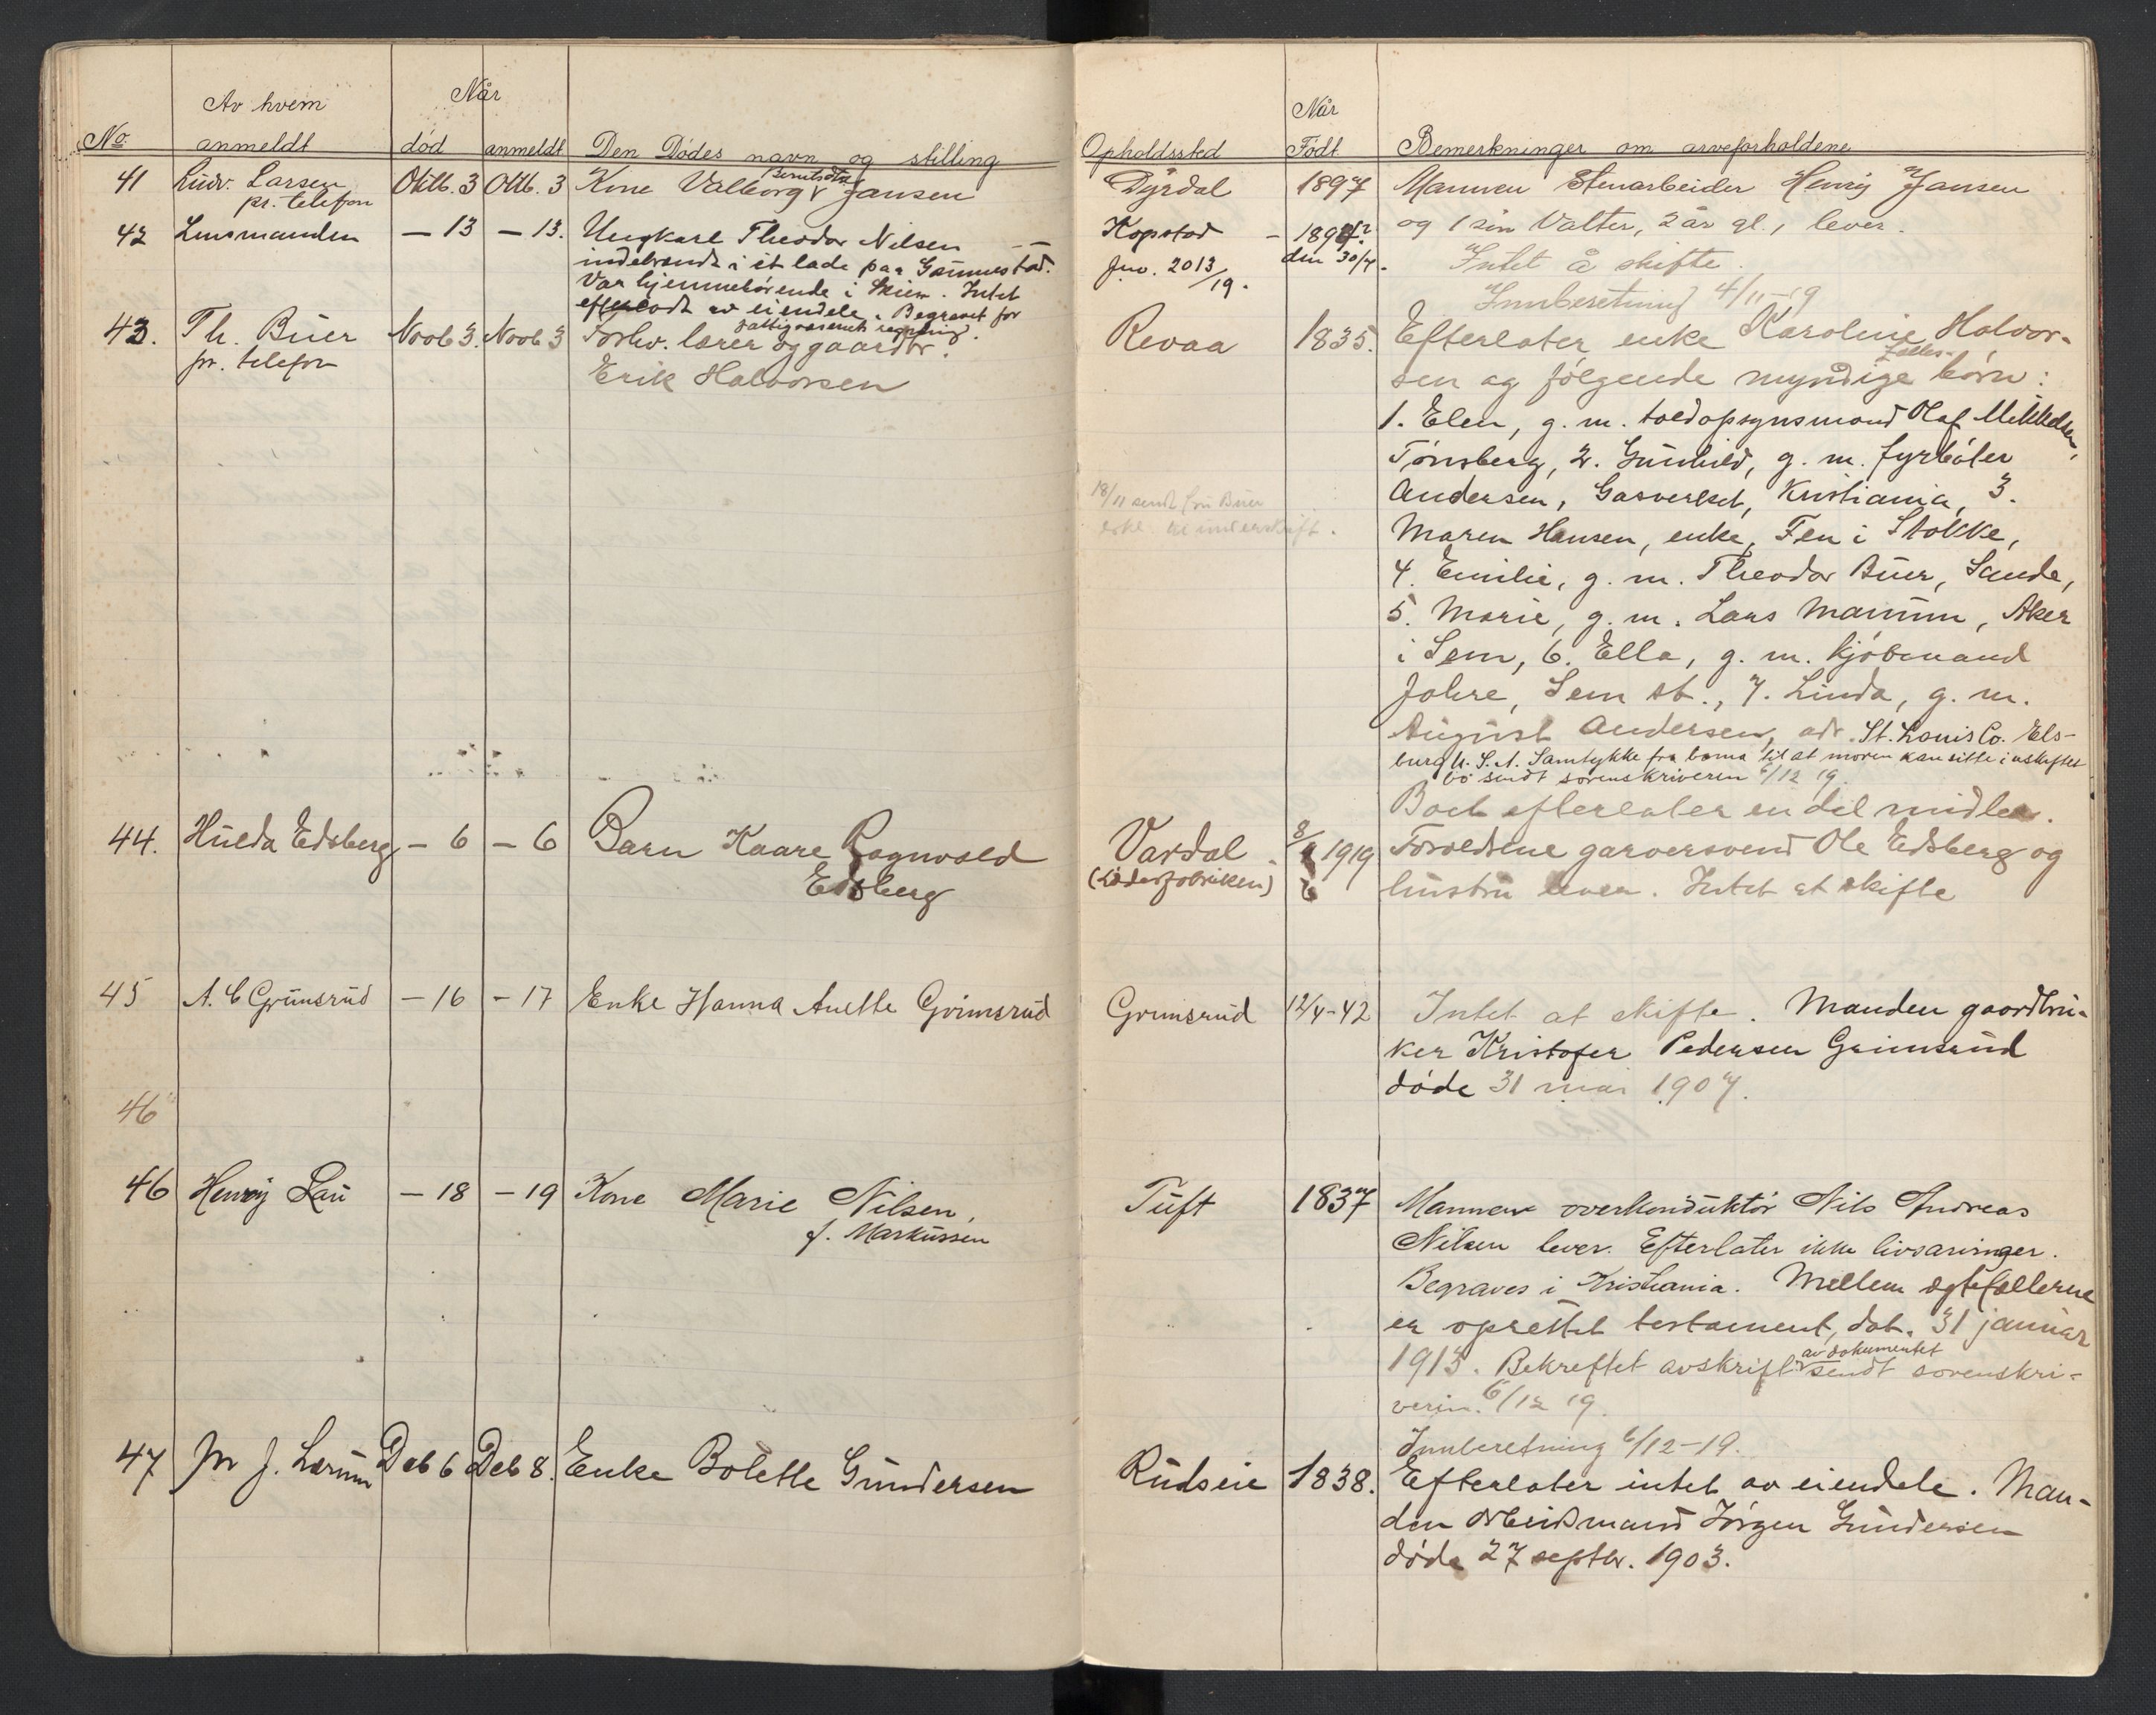 Av hvem
Når
No. anmeldt død anmeldt Den Dødes navn og stilling
41 Ludv. Larsen Oktb. 3 Oktb. 3 Kone Valborg Jansen
pr. telefon
42 Lensmanden — 13 — 13. Ungkarl Theodor Nilsen
indebrændt i et lade paa Gaunestad.
Var hjemmehørende i Skien. Intet
efterladt av eiendele. Begravet for
fattigvæsenets regning.
43. Th. Buer Novb 3. Novb 3 Forhv. lærer og gaardbr.
pr. telefon Erik Halvorsen
44. Hulda Edsberg — 6 — 6 Barn Kaare Ragnvald
Edsberg
45 A. C Grimsrud — 16 — 17 Enke Hanna Anette Grimsrud
46
46 Henrij Lau — 18 — 19 Kone Marie Nilsen,
f. Markussen
47 J. Lærum Deb 6 Deb 8. Enke Bolette Gundersen
Når
Opholdssted Født Bemerkninger om arveforholdene
Dyrdal 1897 Mannen Stenarbeider Henrij Jansen
og 1 søn Valter, 2 år gl., lever.
Kopstad — 1897?
Jnv. 2013/19. den 30/4.
Intet å skifte.
Innberetning 4/11-19
Revaa 1835. Efterlater enke Karoline Halvor-
sen og følgende myndige fælles- børn:
1. Elen, g. m. toldopsynsmand Olaf Mikkelsen,
Tønsberg, 2. Gunhild, g. m. fyrbøter
Andersen, Gasverket, Kristiania, 3.
18/11 sendt fru Buer
erkl. til underskrift.
Maren Hansen, enke, Fen i Stokke,
4. Emilie, g. m. Theodor Buer, Sande,
5. Marie, g. m. Lars Manum, Aker
i Sem, 6. Ella, g. m. kjøbmand
Jahre, Sem st., 7. Linda, g. m.
August Andersen, adr. St. Louis Co. Els-
burg U. S. A. Samtykke fra barna til at moren kan sitte i uskiftet
bo sendt sorenskriveren 6/12 19.
Boet efterlater en del midler.
Vardal 8/6 1919 Forældrene garversvend Ole Edsberg og
(Læderfabriken) hustru lever. Intet at skifte
Grimsrud 12/4-42 Intet at skifte. Manden gaardbru-
ker Kristofer Pedersen Grimsrud
døde 31 mai 1907.
Tuft 1837 Mannen overkonduktør Nils Andreas
Nilsen lever. Efterlater ikke livsarvinger.
Begraves i Kristiania. Mellem egtefællerne
er oprettet testament, dat. 31 januar
1913. Bekreftet avskrift av dokumentet sendt sorenskri-
veren 6/12 19.
Innberetning 6/12-19.
Rudseie 1838. Efterlater intet av eiendele. Man-
den arbeidsmand Jørgen Gundersen
døde 27 septbr. 1903.